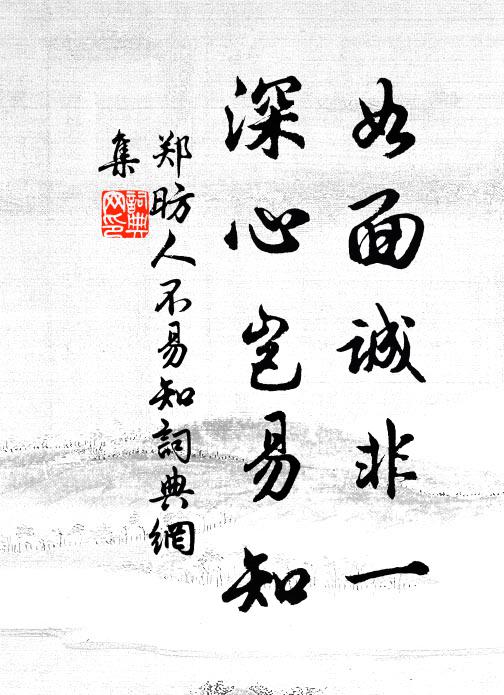 如面诚非一
深心岂易知
郑昉人不易知詞典網
集
詞典网印